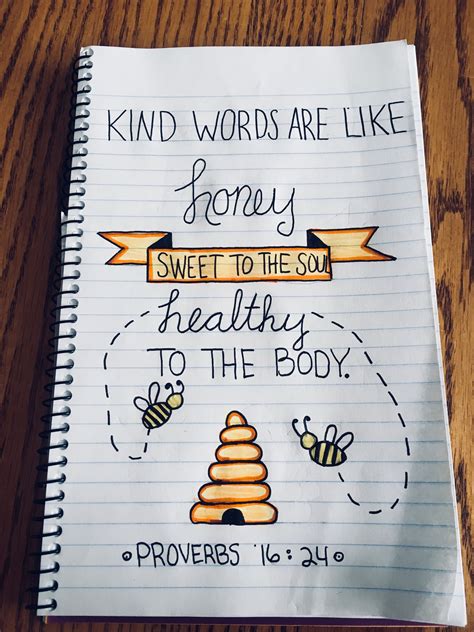 KIND WORDS ARE LIKE
honey
SWEET TO THE SOUL
healthy
TO THE BODY.
PROVERBS 16:24